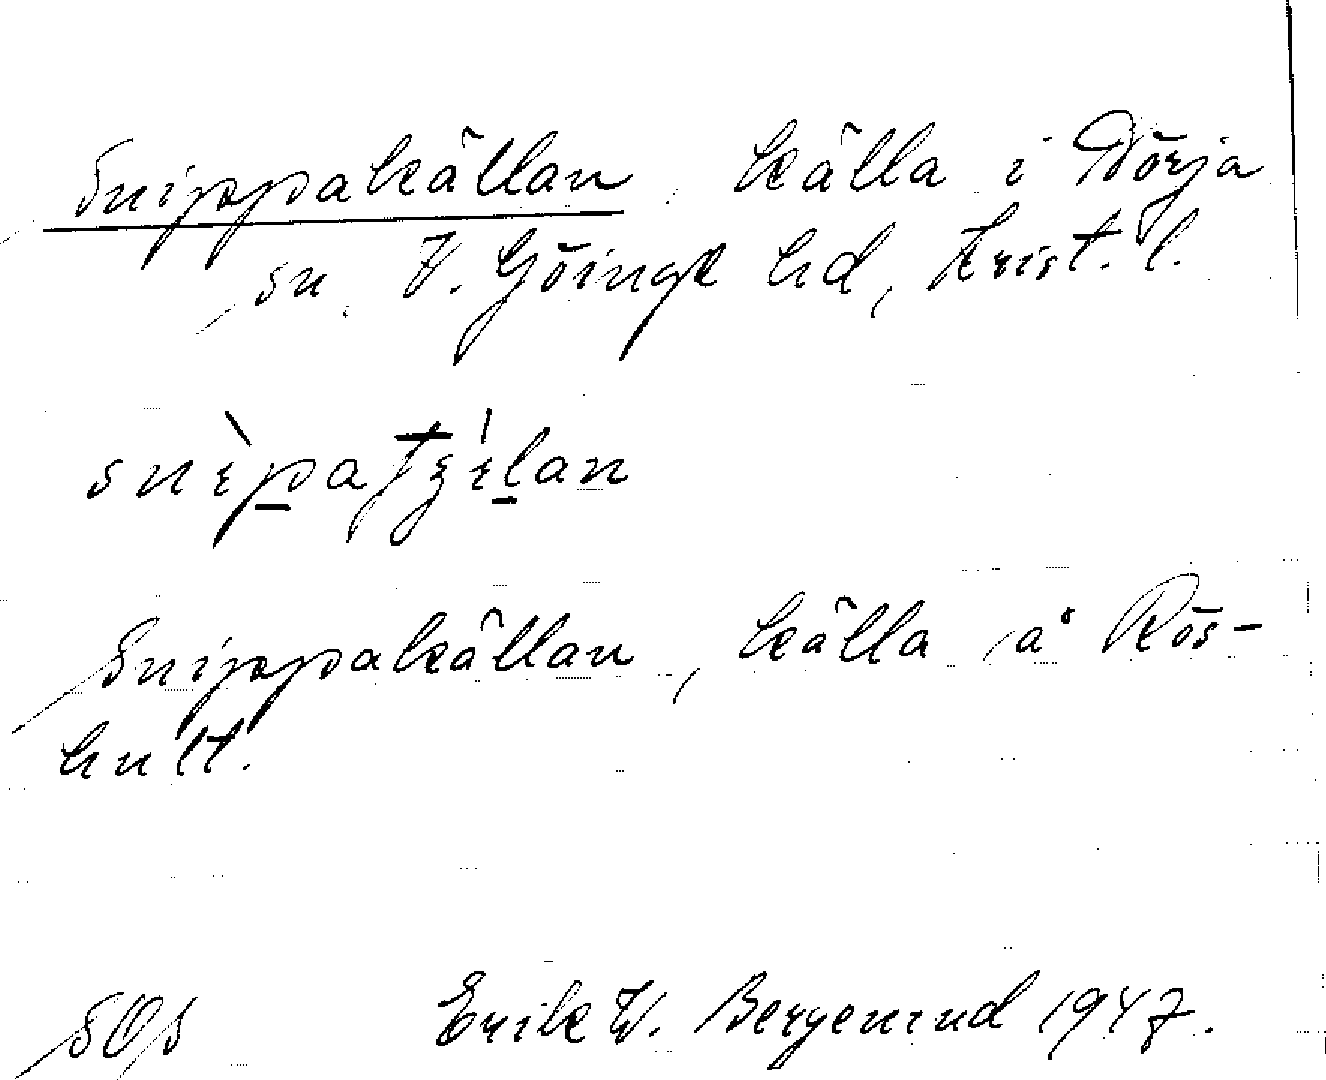 Snippakällan, källa i Nörja
sn. V. Göinge hd, Krist. l.
Snippakällan, källa å Rös-
hult.
SOS Erik W. Bergenrud 1947.